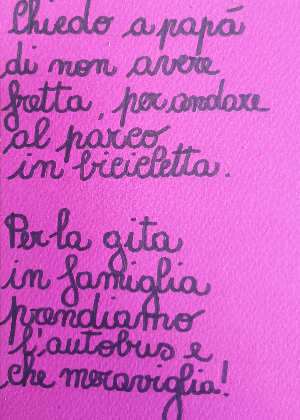 Chiedo a papá
di non avere
fretta, per andare
al parco
in bicicletta.
Per la gita
in famiglia
prendiamo
l'autobus e
che meraviglia!